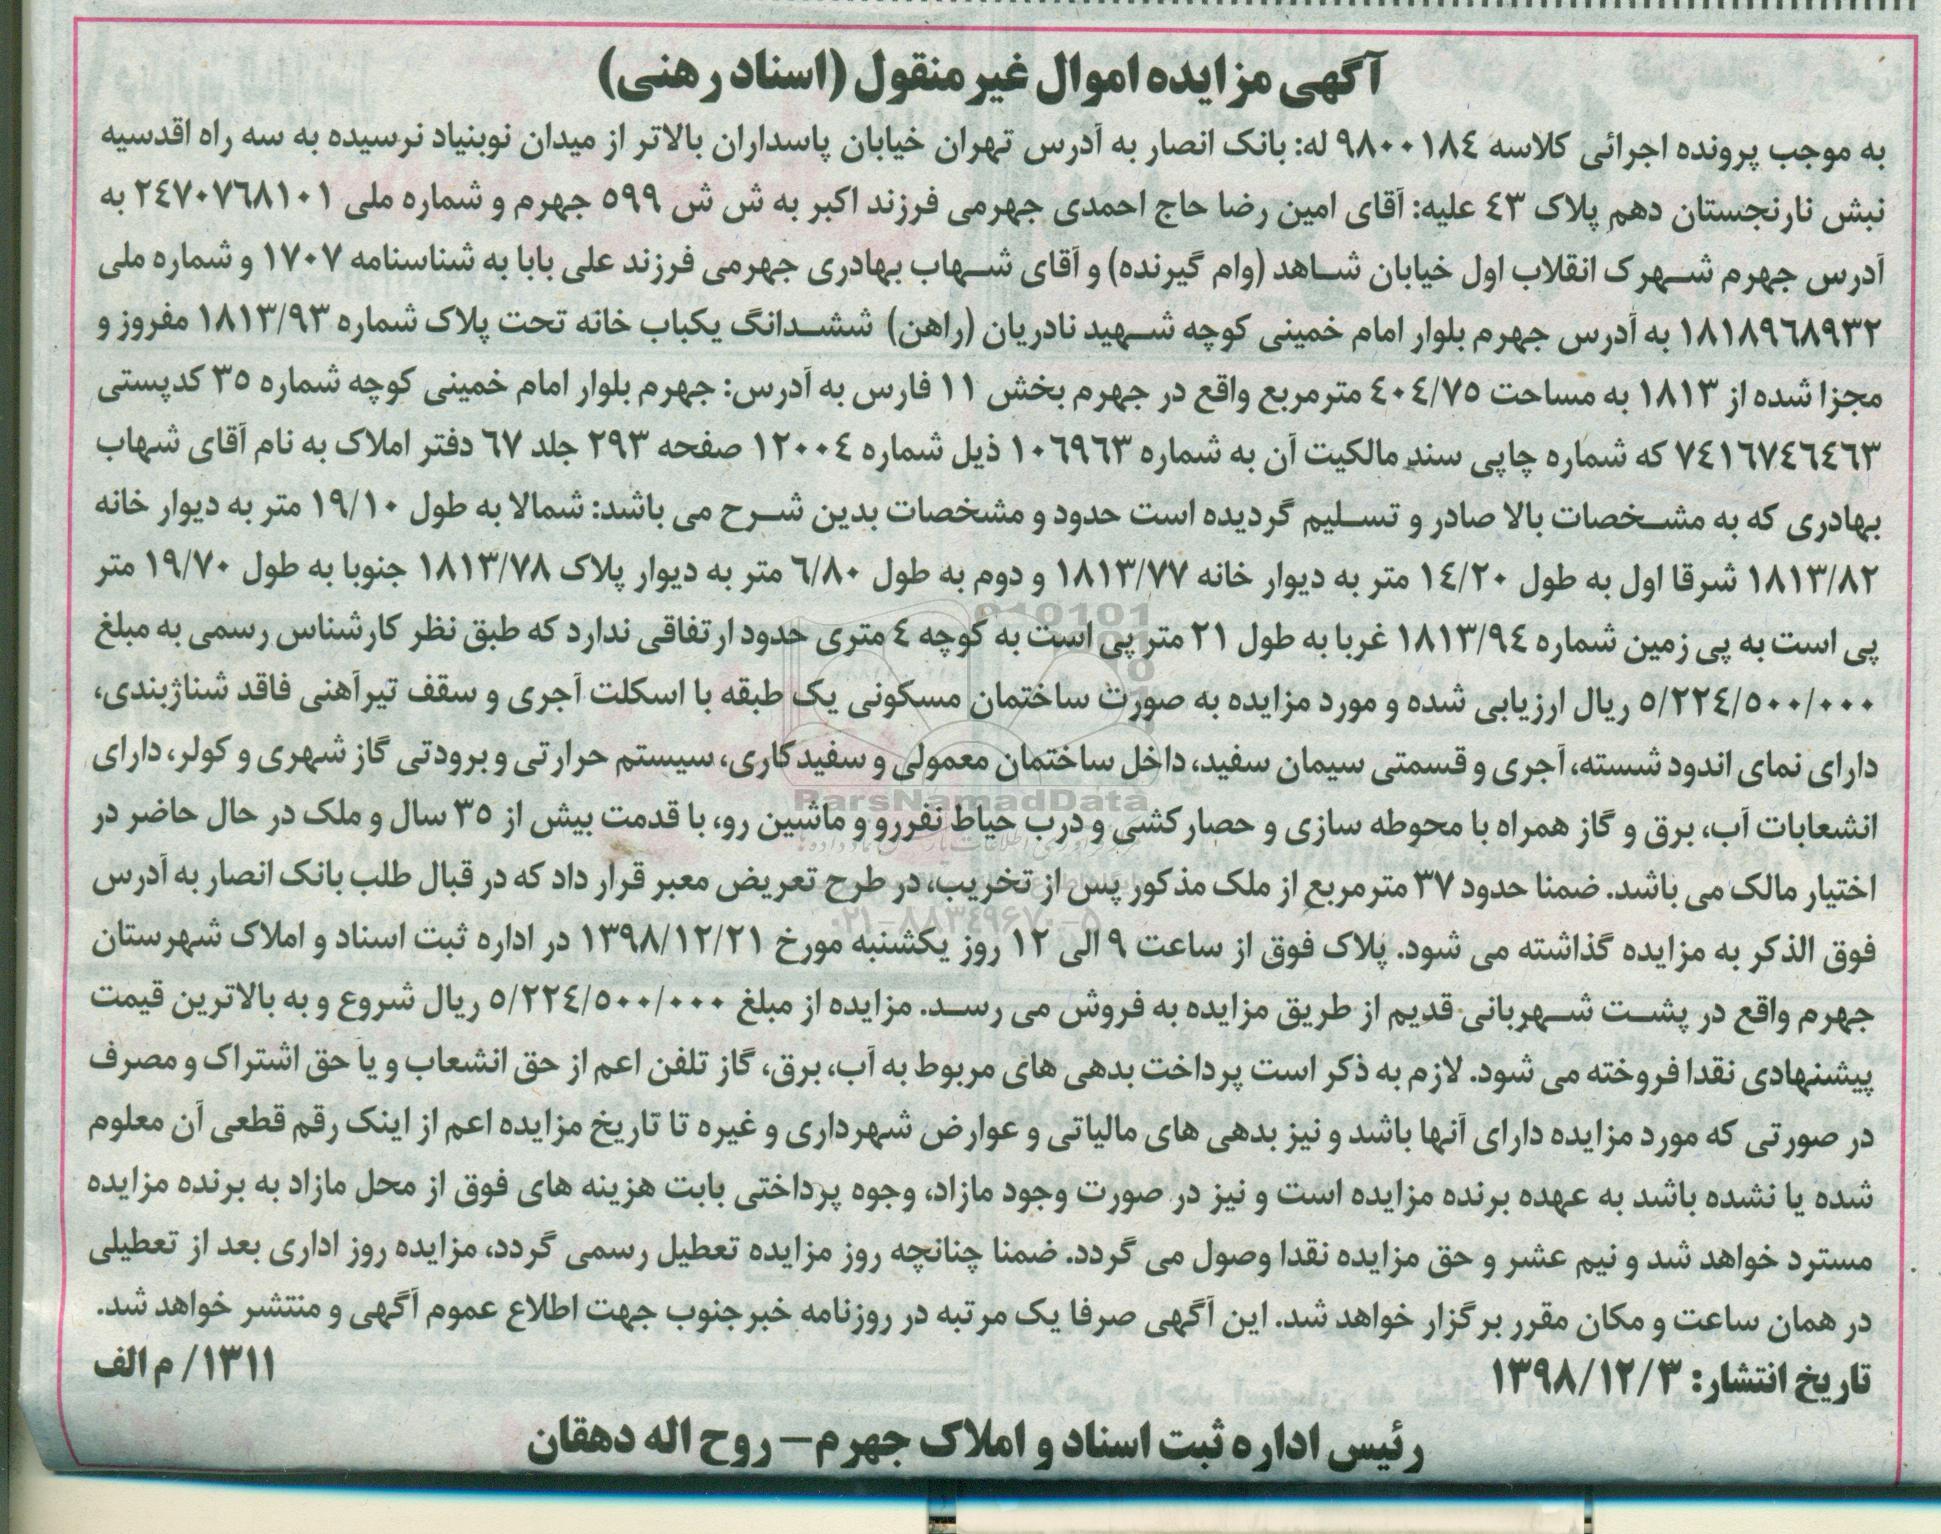 آگهی مزایده اموال غیر منقول (اسناد رهنی)
به موجب پرونده اجرائی کلاسه ٩٨٠٠١٨٤ له: بانک انصار به آدرس تهران خیابان پاسداران بالاتر از میدان نوبنیاد نرسیده به سه راه اقدسیه
نبش نارنجستان دهم پلاک ٤٣ علیه: آقای امین رضا حاج احمدی جهرمی فرزند اکبر به ش ش ٥٩٩ جهرم و شماره ملی ٢٤٧٠٧٦٨١٠١ به
آدرس جهرم شهرک انقلاب اول خیابان شاهد (وام گیرنده) و آقای شهاب بهادری جهرمی فرزند علی بابا به شناسنامه ١٧٠٧ و شماره ملی
١٨١٨٩٦٨٩٣٢ به آدرس جهرم بلوار امام خمینی کوچه شهید نادریان (راهن) ششدانگ یکباب خانه تحت پلاک شماره ١٨١٣/٩٣ مفروز و
مجزا شده از ١٨١٣ به مساحت ٤٠٤/٧٥ مترمربع واقع در جهرم بخش ١١ فارس به آدرس: جهرم بلوار امام خمینی کوچه شماره ٣٥ کدپستی
٧٤١٦٧٤٦٤٦٣ که شماره چاپی سند مالکیت آن به شماره ١٠٦٩٦٣ ذیل شماره ١٢٠٠٤ صفحه ٢٩٣ جلد ٦٧ دفتر املاک به نام آقای شهاب
بهادری که به مشخصات بالا صادر و تسلیم گردیده است حدود و مشخصات بدین شرح می باشد: شمالا به طول ١٩/١٠ متر به دیوار خانه
١٨١٣/٨٢ شرقا اول به طول ١٤/٢٠ متر به دیوار خانه ١٨١٣/٧٧ و دوم به طول ٦/٨٠ متر به دیوار پلاک ١٨١٣/٧٨ جنوبا به طول ١٩/٧٠ متر
پی است به پی زمین شماره ١٨١٣/٩٤ غربا به طول ٢١ متر پی است به کوچه ٤ متری حدود ارتفاقی ندارد که طبق نظر کارشناس رسمی به مبلغ
٥/٢٢٤/٥٠٠/٠٠٠ ریال ارزیابی شده و مورد مزایده به صورت ساختمان مسکونی یک طبقه با اسکلت آجری و سقف تیرآهنی فاقد شناژبندی،
دارای نمای اندود شسته، آجری و قسمتی سیمان سفید، داخل ساختمان معمولی و سفیدکاری، سیستم حرارتی و برودتی گاز شهری و کولر، دارای
انشعابات آب، برق و گاز همراه با محوطه سازی و حصارکشی و درب حیاط نفررو و ماشین رو، با قدمت بیش از ٣٥ سال و ملک در حال حاضر در
اختیار مالک می باشد. ضمنا حدود ٣٧ مترمربع از ملک مذکور پس از تخریب، در طرح تعریض معبر قرار داد که در قبال طلب بانک انصار به آدرس
فوق الذکر به مزایده گذاشته می شود. پلاک فوق از ساعت ٩ الی ١٢ روز یکشنبه مورخ ١٣٩٨/١٢/٢١ در اداره ثبت اسناد و املاک شهرستان
جهرم واقع در پشت شهربانی قدیم از طریق مزایده به فروش می رسد. مزایده از مبلغ ٥/٢٢٤/٥٠٠/٠٠٠ ریال شروع و به بالاترین قیمت
پیشنهادی نقدا فروخته می شود. لازم به ذکر است پرداخت بدهی های مربوط به آب، برق، گاز تلفن اعم از حق انشعاب و یا حق اشتراک و مصرف
در صورتی که مورد مزایده دارای آنها باشد و نیز بدهی های مالیاتی و عوارض شهرداری و غیره تا تاریخ مزایده اعم از اینک رقم قطعی آن معلوم
شده یا نشده باشد به عهده برنده مزایده است و نیز در صورت وجود مازاد، وجوه پرداختی بابت هزینه های فوق از محل مازاد به برنده مزایده
مسترد خواهد شد و نیم عشر و حق مزایده نقدا وصول می گردد. ضمنا چنانچه روز مزایده تعطیل رسمی گردد، مزایده روز اداری بعد از تعطیلی
در همان ساعت و مکان مقرر برگزار خواهد شد. این آگهی صرفا یک مرتبه در روزنامه خبرجنوب جهت اطلاع عموم آگهی و منتشر خواهد شد.
تاریخ انتشار: ١٣٩٨/١٢/٣
١٣١١/ م الف
رئیس اداره ثبت اسناد و املاک جهرم– روح اله دهقان
ParsNamadData
٠٢١-٨٨٣٤٩٦٧٠-٥